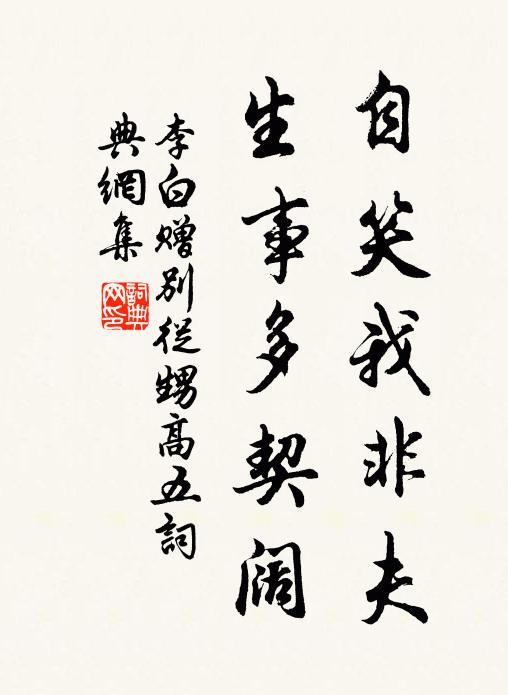 自笑我非夫
生事多契阔
李白赠别從甥高五詞
典網集
詞典
网印